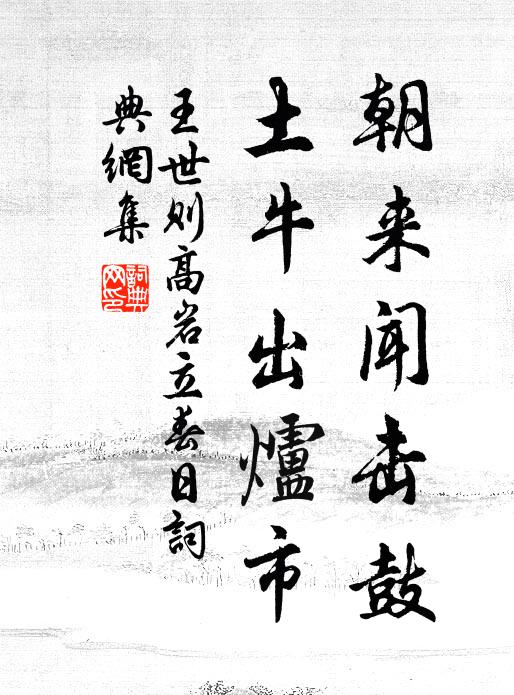 朝来闻击鼓
土牛出爐市
王世则高岩立春日詞
典網集
詞典网印